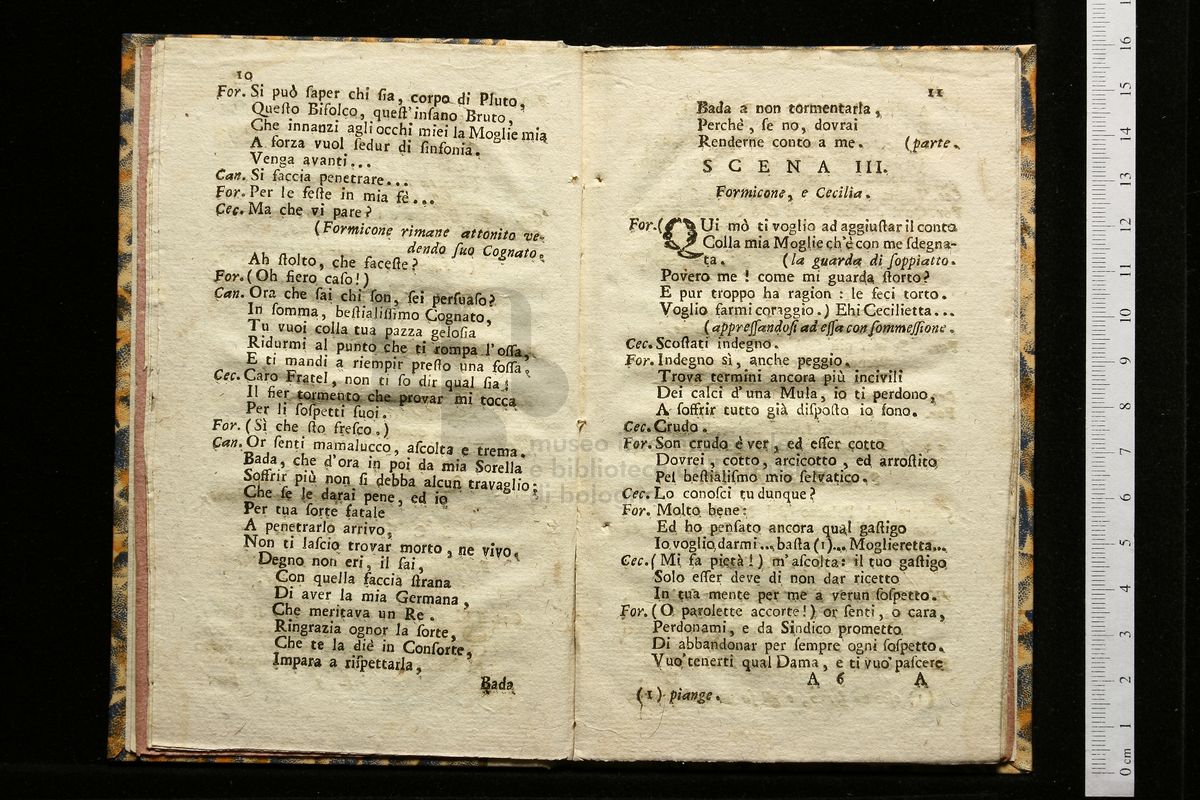 10
For. Si può ſaper chi ſia, corpo di Pluto,
Queſto Bifolco, queſt'inſano Bruto,
Che innanzi agli occhi miei la Moglie mia
A forza vuol ſedur di ſinfonia.
Venga avanti...
Can. Si faccia penetrare...
For. Per le feſte in mia fè...
Cec. Ma che vi pare?
(Formicone rimane attonito ve-
dendo ſuo Cognato.
Ah ſtolto, che faceſte?
For. (Oh fiero caſo!)
Can. Ora che ſai chi ſon, ſei perſuaſo?
In ſomma, beſtialiſſimo Cognato,
Tu vuoi colla tua pazza geloſia
Ridurmi al punto che ti rompa l'oſſa,
E ti mandi a riempir preſto una foſſa.
Cec. Caro Fratel, non ti ſo dir qual ſia
Il fier tormento che provar mi tocca
Per li ſoſpetti ſuoi.
For. (Sì che ſto freſco.)
Can. Or ſenti mamalucco, aſcolta e trema.
Bada, che d'ora in poi da mia Sorella
Soffrir più non ſi debba alcun travaglio;
Che ſe le darai pene, ed io
Per tua ſorte fatale
A penetrarlo arrivo,
Non ti laſcio trovar morto, ne vivo.
Degno non eri, il ſai,
Con quella faccia ſtrana
Di aver la mia Germana,
Che meritava un Re.
Ringrazia ognor la ſorte,
Che te la diè in Conſorte,
Impara a riſpettarla,
Bada
11
Bada a non tormentarla,
Perchè, ſe no, dovrai
Renderne conto a me. (parte.
SCENA III.
Formicone, e Cecilia.
For. (QUi mò ti voglio ad aggiuſtar il conto
Colla mia Moglie ch'è con me ſdegna-
ta. (la guarda di ſoppiatto.
Povero me! come mi guarda ſtorto?
E pur troppo ha ragion: le feci torto.
Voglio farmi coraggio.) Ehi Cecilietta...
(appreſſandoſi ad eſſa con ſommeſſione.
Cec. Scoſtati indegno.
For. Indegno sì, anche peggio.
Trova termini ancora più incivili
Dei calci d'una Mula, io ti perdono,
A ſoffrir tutto già diſpoſto io ſono.
Cec. Crudo.
For. Son crudo è ver, ed eſſer cotto
Dovrei, cotto, arcicotto, ed arroſtito
Pel beſtialiſmo mio ſelvatico.
Cec. Lo conoſci tu dunque?
For. Molto bene:
Ed ho penſato ancora qual gaſtigo
Io voglio darmi... baſta (1)... Moglieretta...
Cec. (Mi fa pietà!) m'aſcolta: il tuo gaſtigo
Solo eſſer deve di non dar ricetto
In tua mente per me a verun ſoſpetto.
For. (O parolette accorte!) or ſenti, o cara,
Perdonami, e da Sindico prometto
Di abbandonar per ſempre ogni ſoſpetto.
Vuo' tenerti qual Dama, e ti vuo' paſcere
A 6 A
(1) piange.
museo
e biblioteca
di bolo